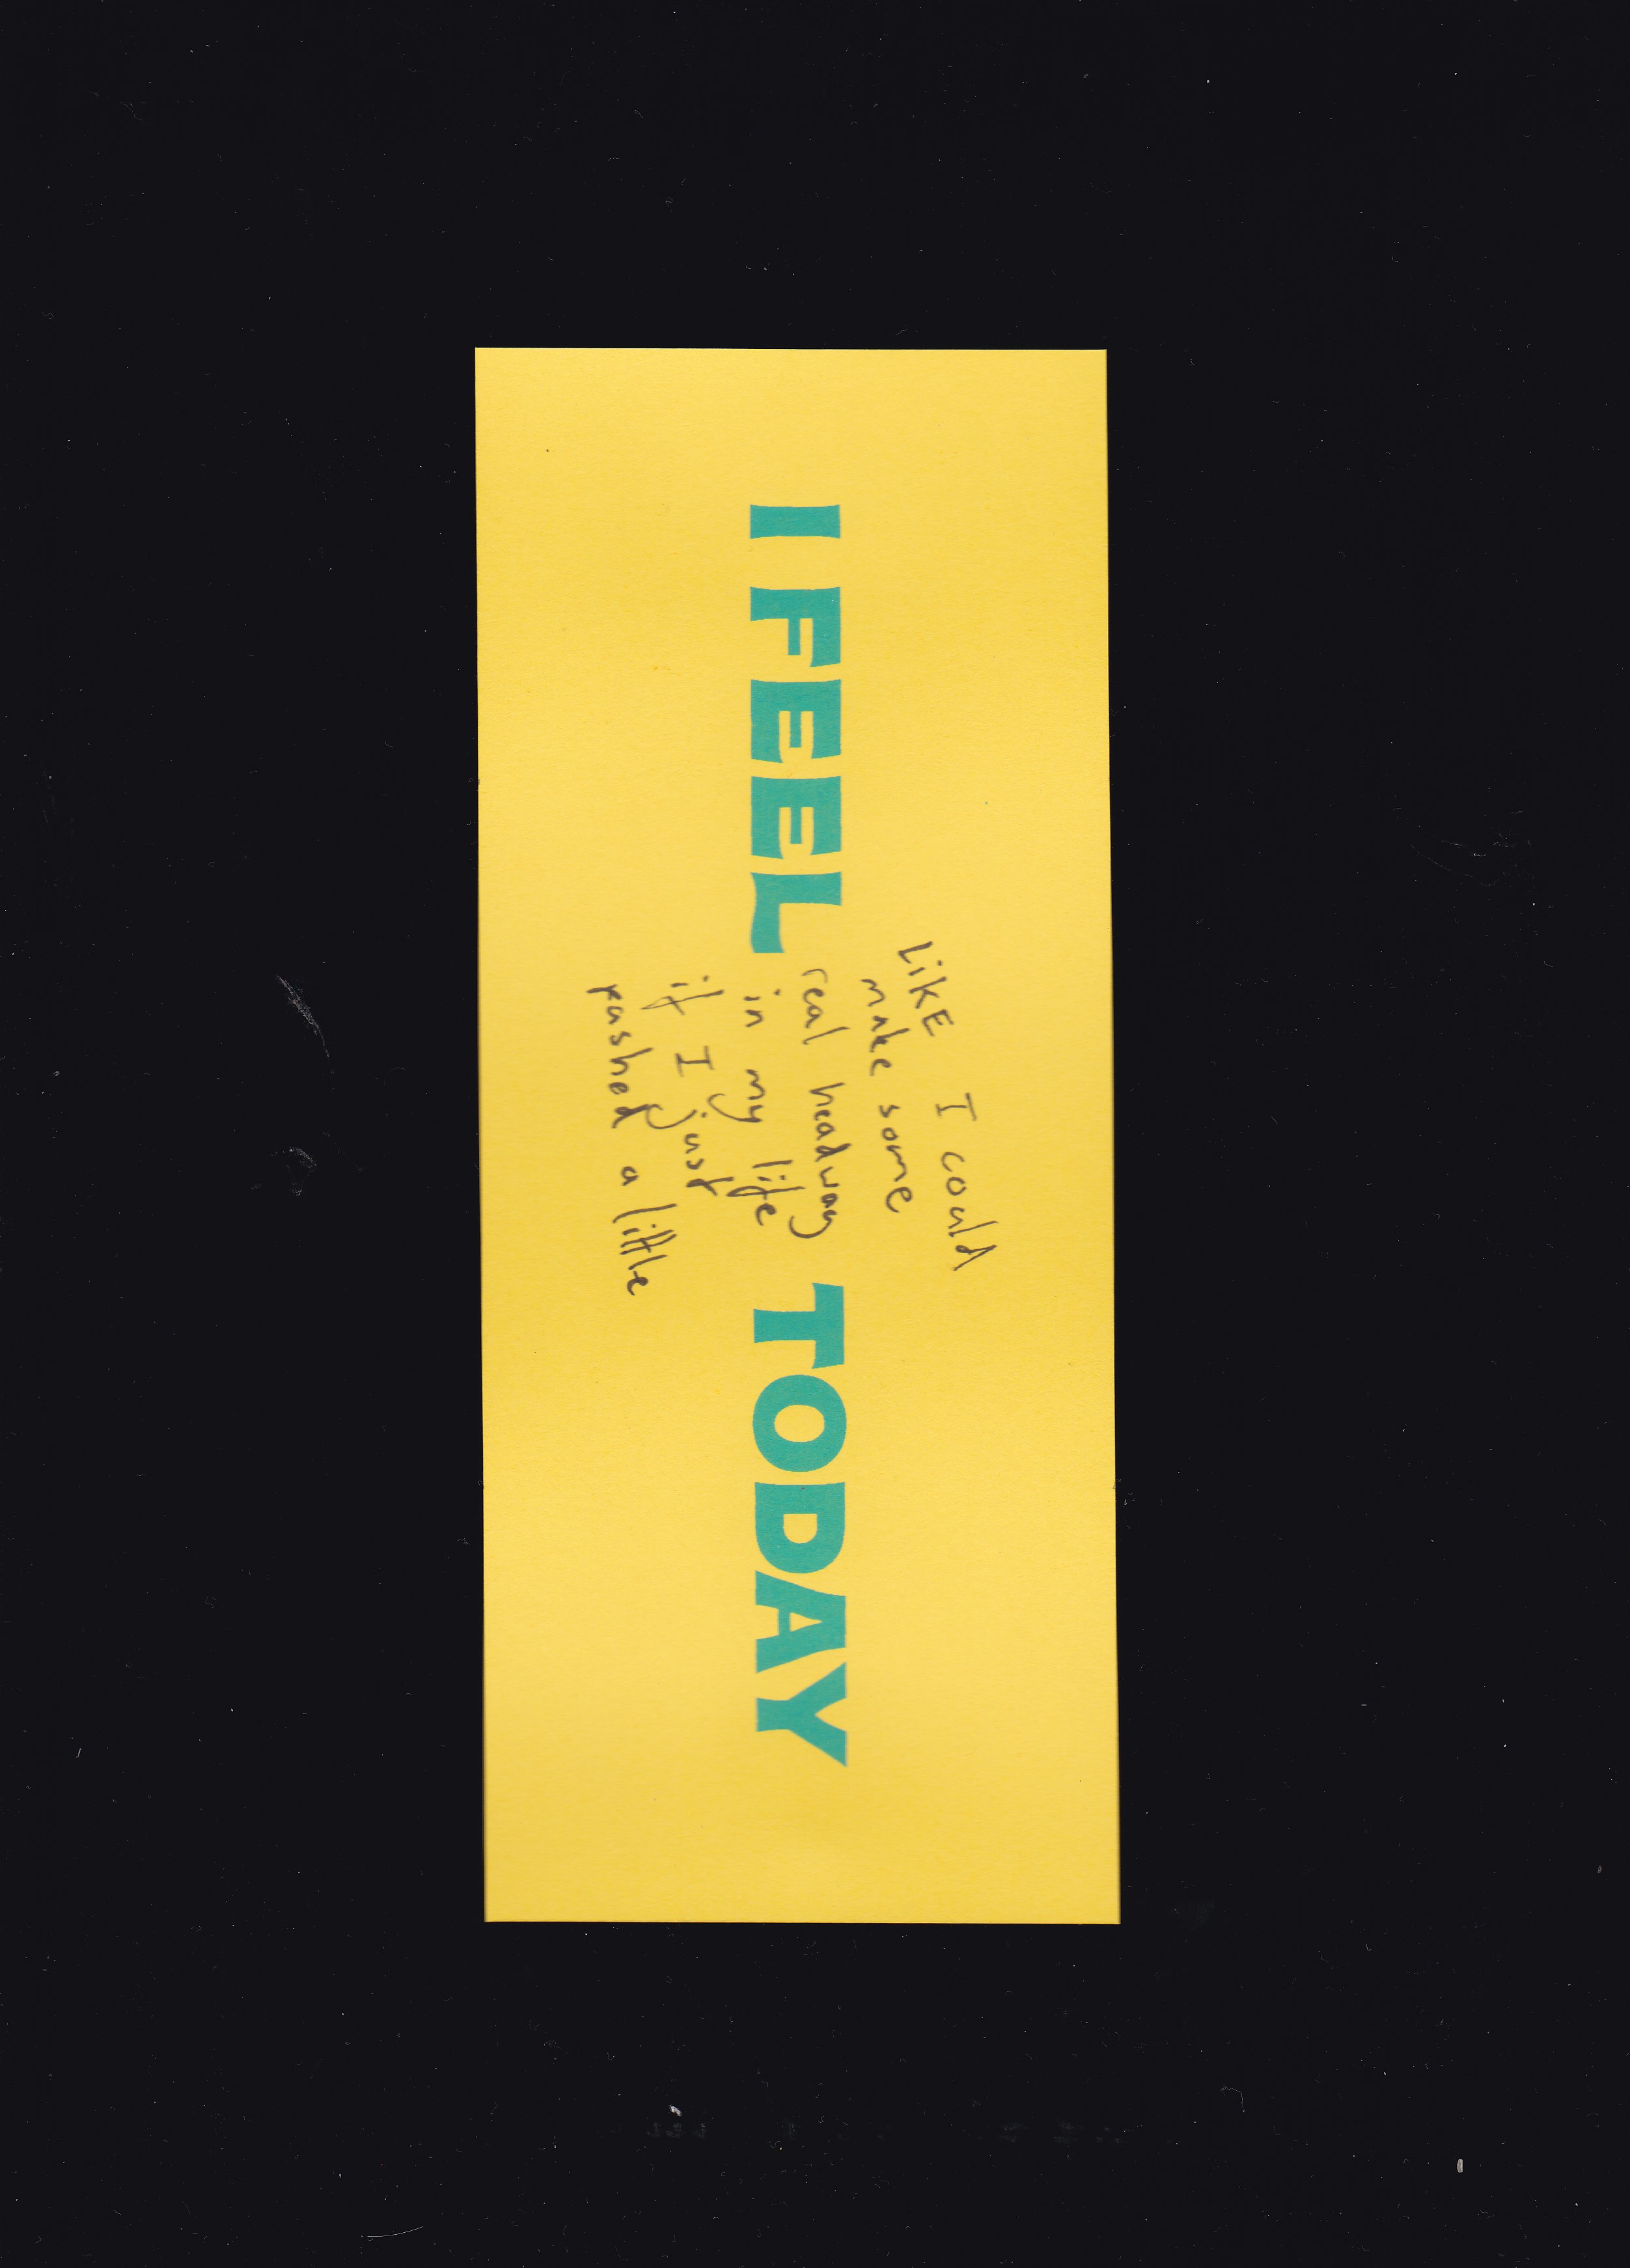 I FEEL
LIKE I could
make some
real headway
in my life
if I just
pushed a little
TODAY